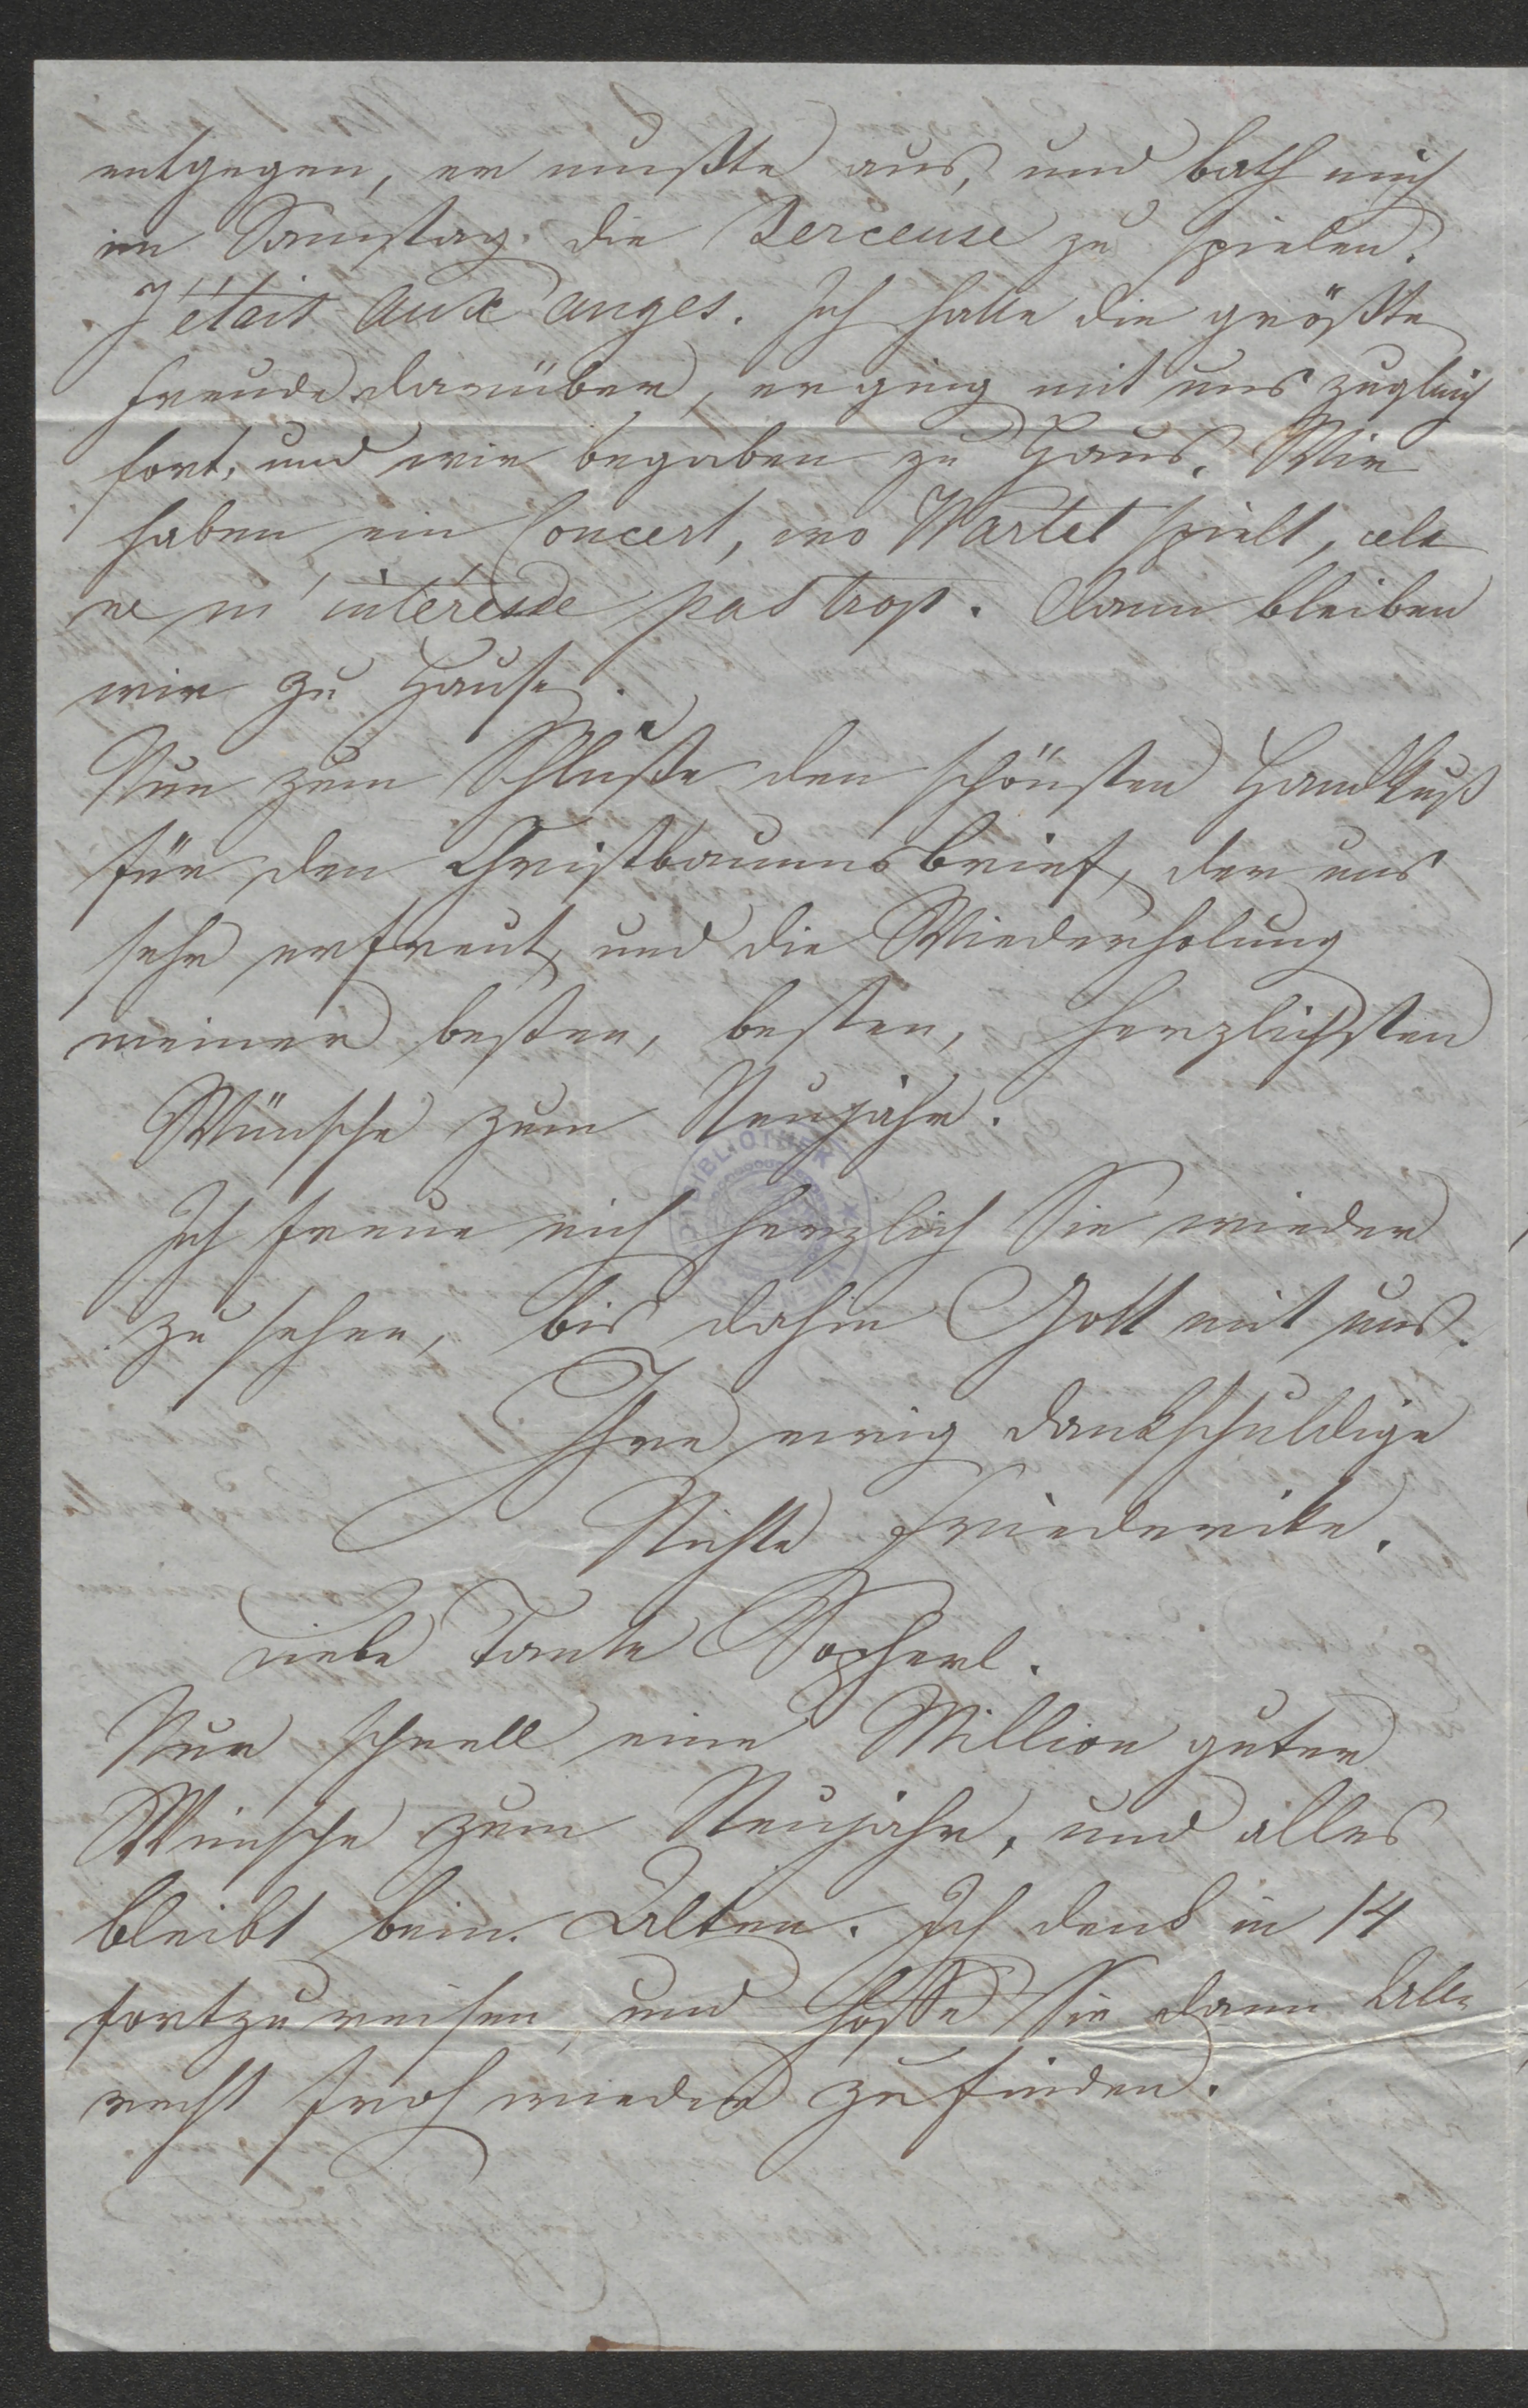 entgegen, er mußte aus, und bath mich
im Samstag die Berceuse zu spielen.
J'étais aux anges. Ich hatte die größte
Freude darüber, er ging mit uns zugleich
fort, und wir begaben zu Haus. Wir
haben ein Concert, wo Wartel spielt, cela
ne m'intéresse pas trop. Dann bleiben
wir zu Hause.
Nun zum Schluße den schönsten Handkuß
für den Christbaumsbrief, der uns
sehr erfreut, und die Wiederholung
meiner besten, besten, herzlichsten
Wünsche zum Neujahr.
Ich freue mich herzlich Sie wieder
zu sehen, bis dahin Gott mit uns.
Ihre ewig dankschuldige
Nichte Friederike.
Liebe Tante Sopherl.
Nun schnell eine Million guter
Wünsche zum Neujahr, und alles
bleibt beim Alten. Ich denk in 14
fortzureisen, und hoffe Sie dann Alle
recht froh wieder zu finden.
BIBLIOTHEK